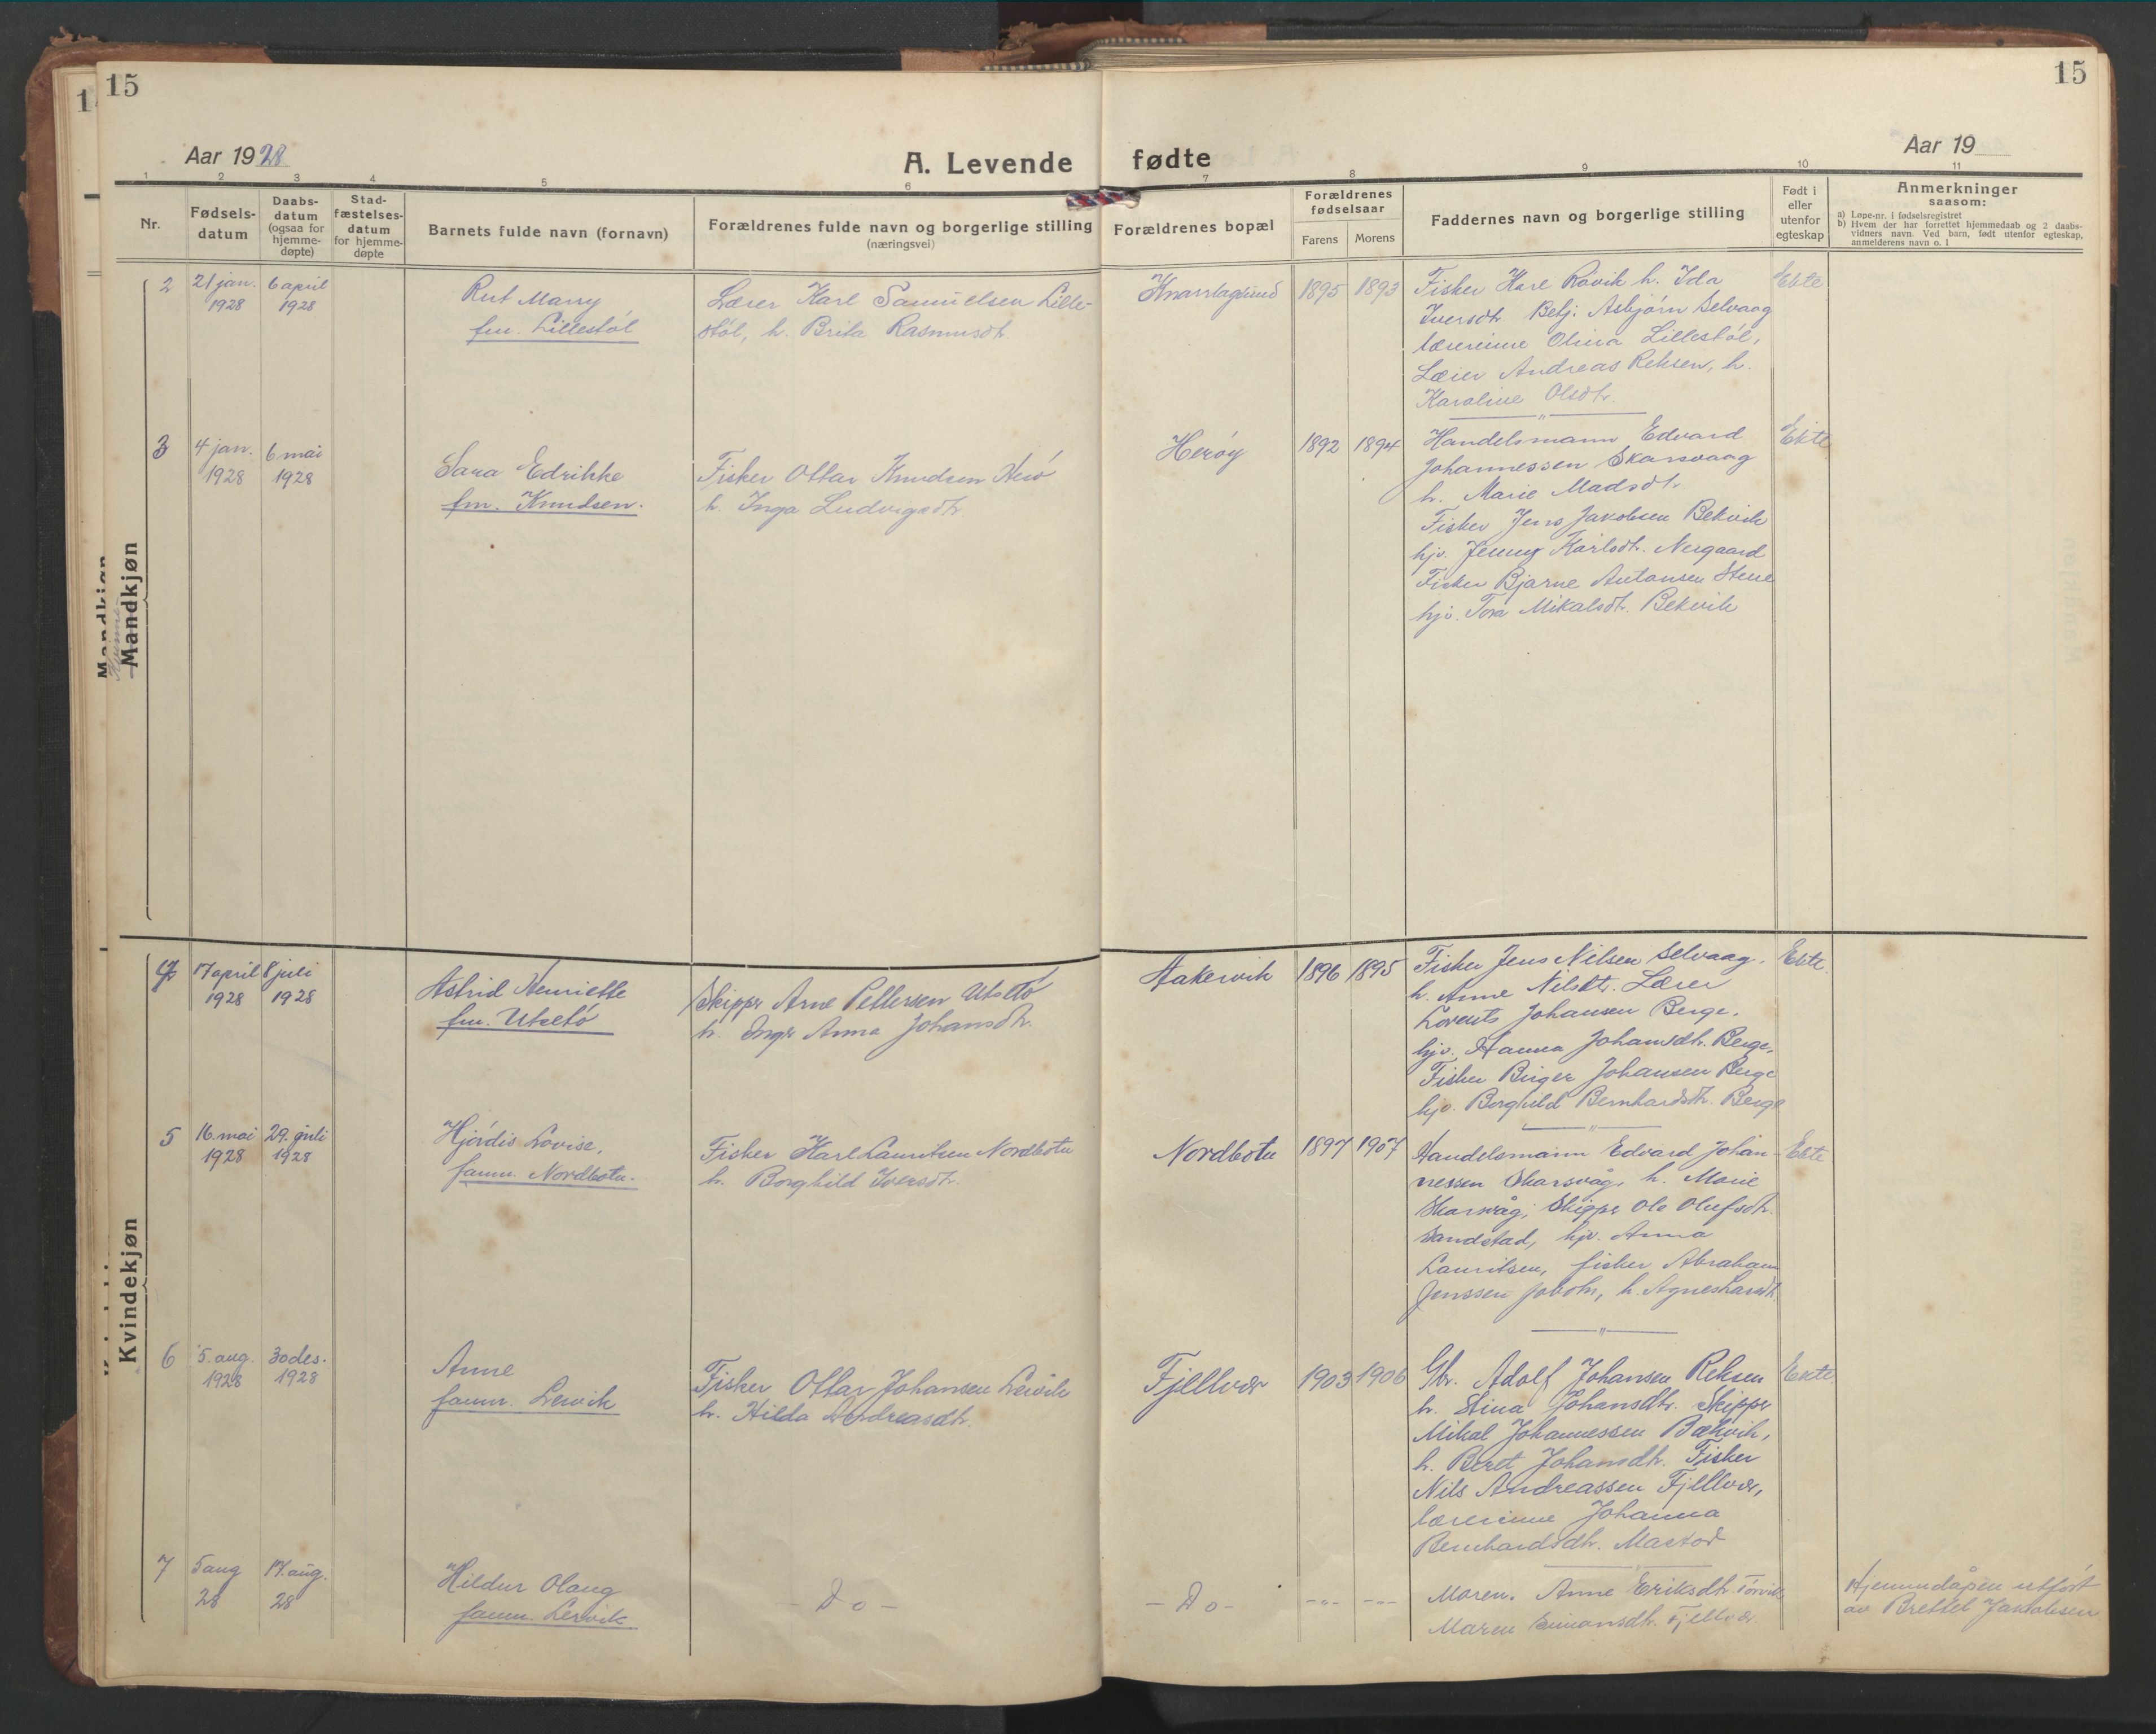 15
15
Aar 1928
A. Levende fødte
Aar 19
1 2 3 4 5 6 7 8 9 10 11
Nr.
Fødsels-
datum
Daabs-
datum
(ogsaa for
hjemme-
døpte)
Stad-
fæstelses-
datum
for hjemme-
døpte
Barnets fulde navn (fornavn)
Forældrenes fulde navn og borgerlige stilling
(næringsvei)
Forældrenes bopæl
Forældrenes
fødselsaar
Farens Morens
Faddernes navn og borgerlige stilling
Født i
eller
utenfor
egteskap
Anmerkninger
saasom:
a) Løpe-nr. i fødselsregistret
b) Hvem der har forrettet hjemmedaab og 2 daabs-
vidners navn. Ved barn, født utenfor egteskap,
anmelderens navn o. l
Mandkjøn
Kvinde-
Mandkjøn
2
21 jan.
1928
6 april
1928
Rut Marry
fm. Lillestöl
Lærer Karl Samuelsen Lille-
stöl, h. Brita Rasmusdtr.
Knarrlagsund
1895 1893
Fisker Kare Rövik h. Ida
Iversdtr. Betj. Asbjörn Selvaag
lærerinne Olina Lillestöl,
Lærer Andreas Reksen, h.
Karoline Olsdtr.
Ekte
3
4 jan.
1928
6 mai
1928
Sara Edrikke
fm. Knudsen.
Fisker Ottar Knudsen
h. Inga Ludvigsdtr.
Heröy
1892 1894
Handelsmann Edvard
Johannessen Skarsvaag
h. Marie Madsdtr.
Fisker Jens Jakobsen Bekvik
hjv. Jenny Karlsdtr. Nergaard
Fisker Bjarne Antonsen Stene
hjv. Tora Mikalsdtr. Bekvik
Ekte
Kvindekjøn
4
17 april
1928
8 juli
1928
Astrid Henriette
fm. Utsetö
Skipper Arne Pettersen Utsetö
h. Inger Anna Johansdtr.
Aakervik
1896 1895
Fisker Jens Nilsen Selvaag.
h. Anne Nilsdtr. Lærer
Lorents Johansen Berge.
hjv. Hanna Johansdtr. Berge,
Fisker Birger Johansen Berge
hjv. Borghild Bernhardsdtr. Berge
Ekte.
5
16. mai
1928
29. juli
1928
Hjördis Lovise,
famn. Nordbotn.
Fisker Karl Lauritsen Nordbotn
h. Borghild Iversdtr.
Nordbotn
1897 1907
Handelsmann Edvard Johan-
nessen Skarsvåg, h. Marie
Skarsvåg, Skipper Ole Olufsdtr.
Sandstad, hjv. Anna
Lauritsen, fisker Abraham
Jenssen h. Agnes
Ekte
6
5. aug.
1928
30 des.
1928
Anne
famn. Lervik
Fisker Ottar Johansen Lervik
h. Hilda Andreasdtr.
Fjellvær
1903 1906
Gbr. Adolf Johansen Reksen
h. Stina Johansdtr. Skipper
Mikal Johannessen Bækvik,
h. Beret Johansdtr. Fisker
Nils Andreassen Fjellvær,
lærerinne Johanna
Bernhardsdtr. Mastad
Ekte.
7
5 aug
28
17. aug.
28
Hildur Olaug
famn. Lervik
– Do –
– Do –
-"- -"-
Moren. Anne Eriksdtr.
Maren Simonsdtr. Fjellvær
Hjemmedåpen utfört
av Brettel Jakobsen